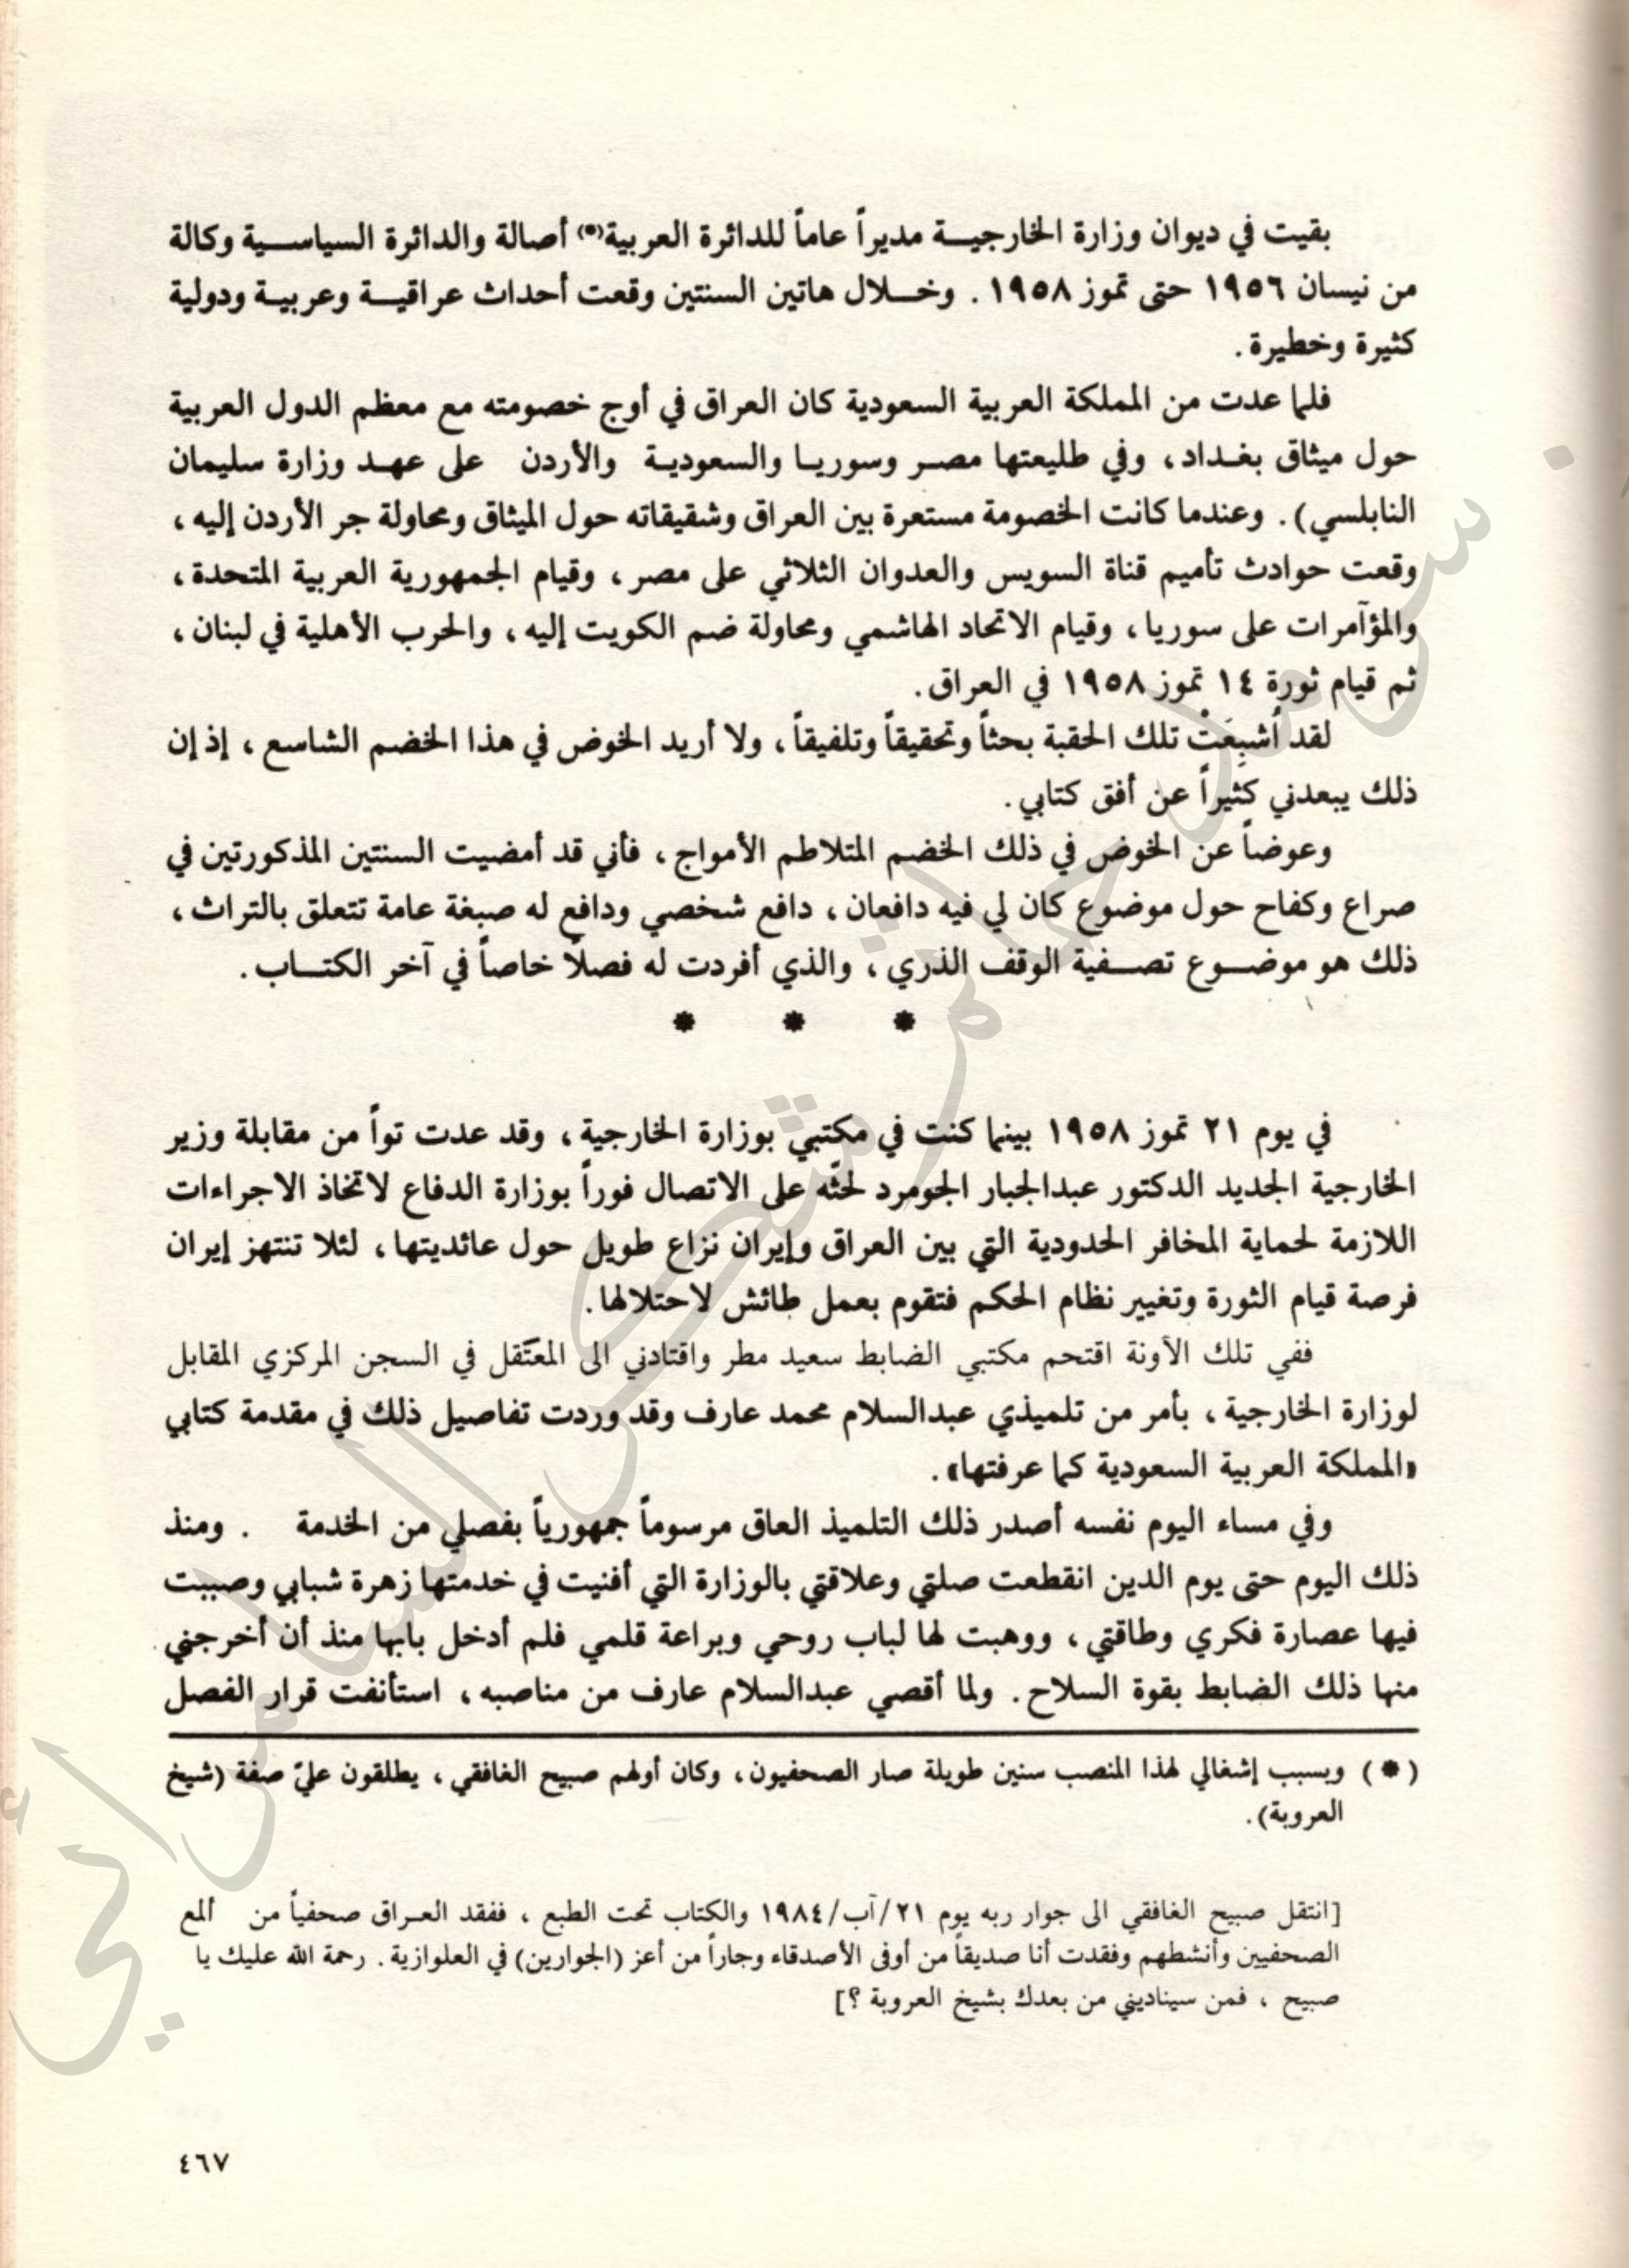 بقيت في ديوان وزارة الخارجيـــة مديراً عاماً للدائرة العربية(*) أصالة والدائرة السياســـية وكالة
من نيسان ١٩٥٦ حتى تموز ١٩٥٨ . وخـــلال هاتين السنتين وقعت أحداث عراقيـــة وعربيـة ودولية
كثيرة وخطيرة .
فلما عدت من المملكة العربية السعودية كان العراق في أوج خصومته مع معظم الدول العربية
حول ميثاق بغـداد ، وفي طليعتها مصـر وسوريـا والسعوديـة والأردن على عهـد وزارة سليمان
النابلسي) . وعندما كانت الخصومة مستعرة بين العراق وشقيقاته حول الميثاق ومحاولة جر الأردن إليه ،
وقعت حوادث تأميم قناة السويس والعدوان الثلاثي على مصر ، وقيام الجمهورية العربية المتحدة ،
والمؤآمرات على سوريا ، وقيام الاتحاد الهاشمي ومحاولة ضم الكويت إليه ، والحرب الأهلية في لبنان ،
ثم قيام ثورة ١٤ تموز ١٩٥٨ في العراق .
لقد أُشبِعَتْ تلك الحقبة بحثاً وتحقيقاً وتلفيقاً ، ولا أريد الخوض في هذا الخضم الشاسع ، إذ إن
ذلك يبعدني كثيراً عن أفق كتابي .
وعوضاً عن الخوض في ذلك الخضم المتلاطم الأمواج ، فأني قد أمضيت السنتين المذكورتين في
صراع وكفاح حول موضوع كان لي فيه دافعان ، دافع شخصي ودافع له صبغة عامة تتعلق بالتراث ،
ذلك هو موضـــوع تصـــفية الوقف الذري ، والذي أفردت له فصلًا خاصاً في آخر الكتـــاب .
* * *
في يوم ٢١ تموز ١٩٥٨ بينما كنت في مكتبي بوزارة الخارجية ، وقد عدت تواً من مقابلة وزير
الخارجية الجديد الدكتور عبدالجبار الجومرد لحثّه على الاتصال فوراً بوزارة الدفاع لاتخاذ الاجراءات
اللازمة لحماية المخافر الحدودية التي بين العراق وإيران نزاع طويل حول عائديتها ، لئلا تنتهز إيران
فرصة قيام الثورة وتغيير نظام الحكم فتقوم بعمل طائش لاحتلالها .
ففي تلك الآونة اقتحم مكتبي الضابط سعيد مطر واقتادني الى المعتَقل في السجن المركزي المقابل
لوزارة الخارجية ، بأمر من تلميذي عبدالسلام محمد عارف وقد وردت تفاصيل ذلك في مقدمة كتابي
«المملكة العربية السعودية كما عرفتها» .
وفي مساء اليوم نفسه أصدر ذلك التلميذ العاق مرسوماً جمهورياً بفصلي من الخدمة . ومنذ
ذلك اليوم حتى يوم الدين انقطعت صلتي وعلاقتي بالوزارة التي أفنيت في خدمتها زهرة شبابي وصببت
فيها عصارة فكري وطاقتي ، ووهبت لها لباب روحي وبراعة قلمي فلم أدخل بابها منذ أن أخرجني
منها ذلك الضابط بقوة السلاح . ولما أقصي عبدالسلام عارف من مناصبه ، استأنفت قرار الفصل
(*) وبسبب إشغالي لهذا المنصب سنين طويلة صار الصحفيون ، وكان أولهم صبيح الغافقي ، يطلقون عليّ صفة (شيخ
العروبة) .
[انتقل صبيح الغافقي الى جوار ربه يوم ٢١/آب/١٩٨٤ والكتاب تحت الطبع ، ففقد العـراق صحفياً من ألمع
الصحفيين وأنشطهم وفقدت أنا صديقاً من أوفى الأصدقاء وجاراً من أعز (الجوارين) في العلوازية . رحمة الله عليك يا
صبيح ، فمن سيناديني من بعدك بشيخ العروبة ؟]
٤٦٧